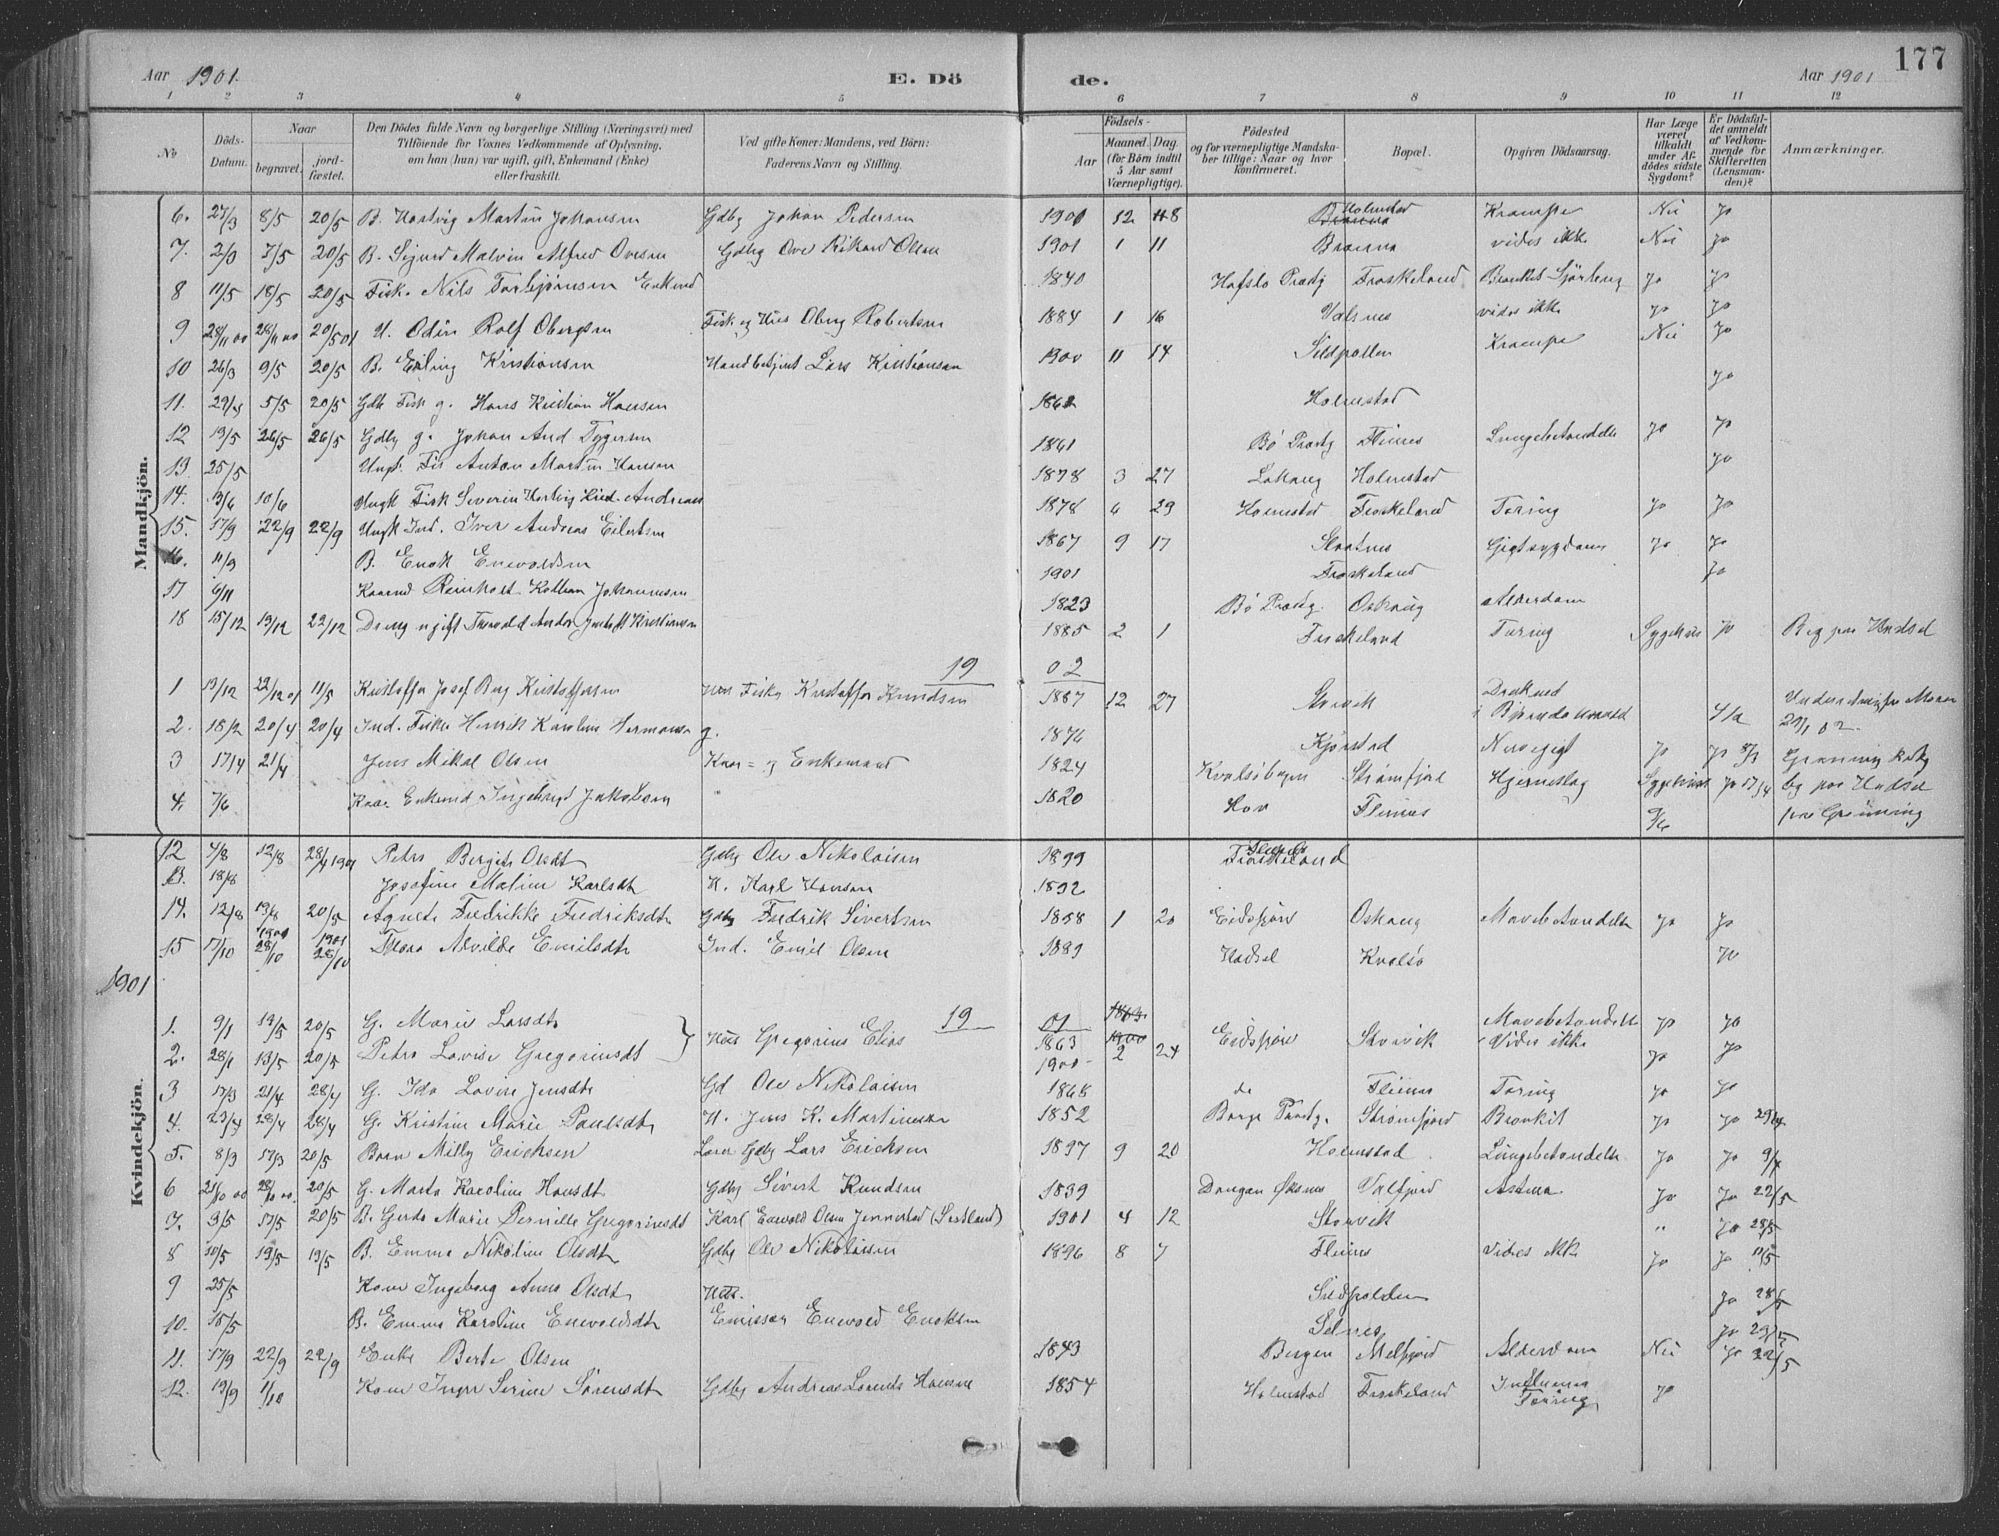 177
Aar 1901. E. Dö de. Aar 1901
1 2 3 4 5 6 7 8 9 10 11 12
No
Döds-Datum.
Naar
begravet. jordfæstet.
Den Dödes fulde Navn og borgerlige Stilling (Næringsvei) med
Tilföiende for Voxnes Vedkommende af Oplysning,
om han (hun) var ugift, gift, Enkemand (Enke)
eller fraskilt.
Ved gifte Koner: Mandens, ved Börn:
Faderens Navn og Stilling.
Födsels-
Aar Maaned Dag.
(for Börn indtil
5 Aar samt
Værnepligtige).
Födested
og for værnepligtige Mandskaber tillige: Naar og hvor
konfirmeret.
Bopæl.
Opgiven Dödsaarsag.
Har Læge
været
tilkaldt
under Afdödes sidste
Sygdom?
Er Dödsfaldet anmeldt
af Vedkommende for
Skifteretten
(Lensmanden)?
Anmærkninger.
Mandkjön.
6. 27/3 8/5 20/5 B. Hartvig Martin Johansen Gdbg Johan Pedersen 1900 12 8 Holmstad Krampe Nei Jo
7. 2/3 7/5 20/5 B. Sigurd Malvin Alfred Ovesen Gdbg Ove Rikard Olsen 1901 1 11 Brænna vides ikke Nei Jo
8 11/5 18/5 20/5 Fisk. Nils Torbjørnsen Enkmd 1840 Hafslo Præstg Froskeland Jo Jo
9 28/11 00 28/11 00 20/5 01 U. Odin Rolf Obergsen Fisk og Hus Oberg Robertsen 1884 1 16 Valsnes vides ikke Jo Jo
10 26/3 9/5 20/5 B. Erling Kristiansen Handbetjent Lars Kristiansen 1900 11 14 Sildpollen Krampe Nei Jo
11. 29/4 5/5 20/5 Gdb Fisk g. Hans Kristian Hansen 1862 Holmstad Jo
12 19/5 26/5 26/5 Gdbg g. Johan And Tygersen 1861 Bø Præstg Flines Lungebetændelse Jo Jo
13 25/5 Ungk. Fis Anton Martin Hansen 1878 3 27 Holmstad Jo
14. 3/6 10/6 Ungk Fisk Severin Hartvig Lind. Andreas 1878 6 29 Holmstad Froskeland Tæring Jo Jo
15. 17/9 22/9 22/9 Ungk Ind. Iver Andreas Eilertsen 1867 9 17 Skotnes Gigtsygdom Jo Jo
16. 11/9 B. Enok Enevoldsen 1901 Froskeland Jo
17 6/11 Kaarmd Reinholt Johannessen 1823 Bø Præstg. Oshaug Alderdom
18 15/12 19/12 22/12 Dreng ugift Torvald Andor Kristiansen 1885 2 1 Froskeland Tæring Sygehus Jo Beg paa Hadsel
19 02
1 13/12 22/12 01 11/5 Kristoffer Josef Berg Kristoffersen Hus Fisk Kristoffer Knudsen 1887 12 27 Storvik Druknet i 4/2 29/1 02.
2. 18/2 20/4 20/4 Ind. Fisker Henrik Karolius Hermansen g. 1876 Kjørstad Nervegigt Jo Jo
3 17/4 21/4 Jens Mikal Olsen Kaar= og Enkemand 1824 Kvalsöbugen Strømfjord Hjerneslag Sygehus Jo 17/4 Beg paa Hadsel
4. 7/6 Kaar Enkemd Ingebrigt Jakobsen " 1820 Hov Flines 9/6
Kvindekjön.
12 4/8 12/8 28/4 1901 Petra Bergite Olsdt Gdbg Ole Nikolaisen 1899 Froskeland
13. 18/8 Josefine Maline Karlsdt H. Karl Hansen 1892
14. 12/8 19/8 20/5 Agnete Fredrikke Fredriksdt Gdbg Fredrik Sivertsen 1858 1 20 Eidsfjord Oshaug Mavebetændelse Jo Jo
1900 1901
15 17/10 28/10 28/10 Thora Alvilde Emilsdt Ind. Emil Olsen 1889 Hadsel Kvalsö Jo
1901
19 01 1863
1. 9/1 19/5 20/5 G. Marie Larsdt Hus Gregorius Elias 1863 Eidsfjord Storvik Mavebetændelse Jo Jo
2. 28/1 13/5 20/5 Petra Lovise Gregoriusdt 1900 2 24 Vides ikke Jo Jo
3 17/3 21/4 28/4 G. Ida Lovise Jensdt Gd Ole Nikolaisen 1868 do Flines Tæring Jo Jo
4. 23/4 28/4 28/4 G. Kristine Marie Paulsdt H. Jens K. Martinussen 1852 Borge Præstg. Strømfjord Bronkit Jo Jo 29/4
5. 8/3 17/3 20/5 Barn Milly Ericksen Lærer Gdbg Lars Ericksen 1897 9 20 Holmstad Lungebetændelse Jo Jo 9/4
6 21/10 00 28/10 00 20/5 G. Marta Karoline Hansdt Gdbg Sivert Knudsen 1839 Øksnes Valfjord Astma Jo Jo 22/5
7. 9/5 17/5 20/5 B. Gerda Marie Pernille Gregoriusdt Karl Enevold Olsen Jennestad (Sortland) 1901 4 12 Storvik " Jo 28/5
8 10/5 19/5 19/5 B. Emma Nikoline Olsdt Gdbg Ole Nikolaisen 1896 8 7 Flines Vides ikke Jo Jo 11/5
9 25/5 Kone Ingeborg Anna Olsdt Hus. Sildpolden Jo 28/5
10. 15/5 B. Emma Karoline Enevoldsdt Emissær Enevold Enoksen Selnes Jo 29/5
11. 17/9 22/9 22/9 Enke Berte Olsen 1843 Bergen Melfjord Alderdom Nei Jo 22/5
12. 19/9 1/10 Kone Inger Serine Sørensdt Gdbg Andreas Lorents Hansen 1854 Holmstad Froskeland Influensa Tæring Jo